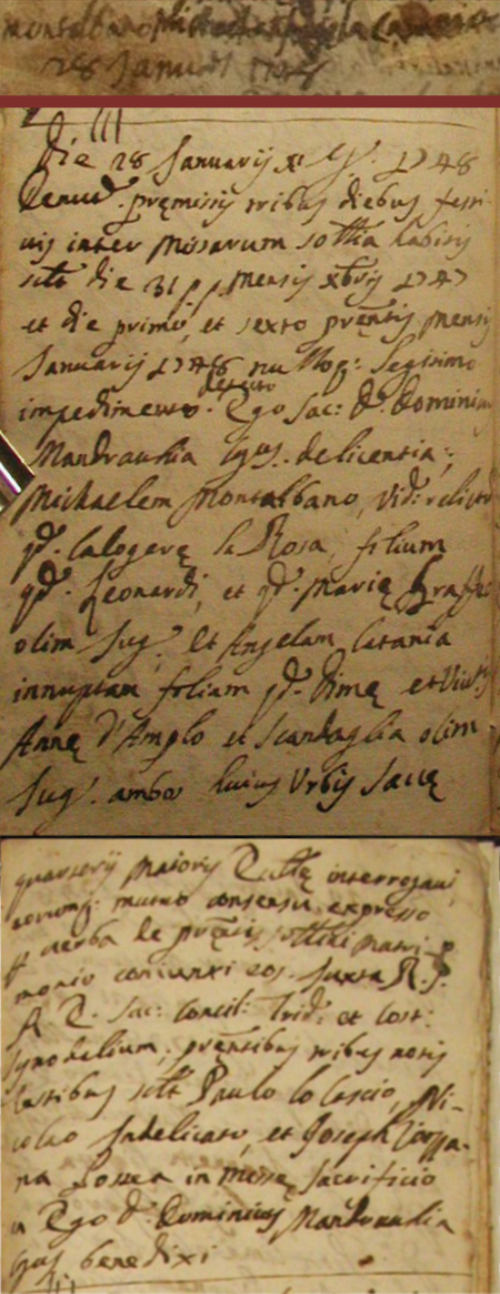 28 Januarij 1748
Die 28 Januarij xi Ind. 1748
Denud. premissis tribus diebus festi-
vis inter Missarum sollnia habitis
sclt die 31 p. p. mensis xbris 1747
et die primo, et sexto prentis mensis
Januarij 1748 nulloq: legitimo
impedimento detecto Ego Sac: D. Dominicus
Mandracchia de licentia,
Michaelem Montalbano, vid: relictum
qd. Calogere la Rosa, filium
qd. Leonardi, et qd. Marie
olim jug. et Angelam Catania
innuptam filiam qd. Dime et viv.
Anne D'Amplo et Scandaglia olim
jug. ambo huius Urbis Sacce
quarterij maioris Eccle interrogavi
eorumq: mutuo consensu expresso
p verba de prenti sollni matri-
monio coniunxi eos. Juxta R. S.
R. E. Sac: Concil: Trid: et Cost:
Synodalium, prentibus tribus notis
testibus sclt Paulo lo Cascio, Ni-
colao Indelicato, et Joseph
na Postea in Misse sacrificio
Ego D. Dominicus Mandracchia
benedixi